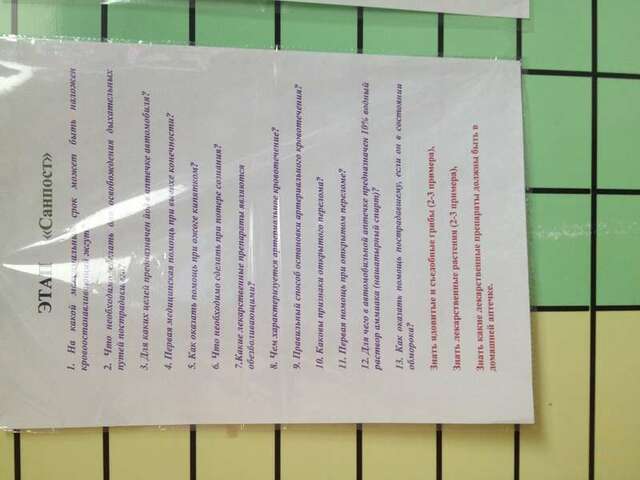 ЭТАП «Санпост»
1. На какой максимальный срок может быть наложен
кровоостанавливающий жгут?
2. Что необходимо сделать для освобождения дыхательных
путей пострадавшего?
3. Для каких целей предназначен йод в аптечке автомобиля?
4. Первая медицинская помощь при вывихе конечности?
5. Как оказать помощь при ожоге кипятком?
6. Что необходимо сделать при потере сознания?
7.Какие лекарственные препараты являются
обезболивающими?
8. Чем характеризуется артериальное кровотечение?
9. Правильный способ остановки артериального кровотечения?
10. Каковы признаки открытого перелома?
11. Первая помощь при открытом переломе?
12. Для чего в автомобильной аптечке предназначен 10% водный
раствор аммиака (нашатырный спирт)?
13. Как оказать помощь пострадавшему, если он в состоянии
обморока?
Знать ядовитые и съедобные грибы (2-3 примера),
Знать лекарственные растения (2-3 примера),
Знать какие лекарственные препараты должны быть в
домашней аптечке.